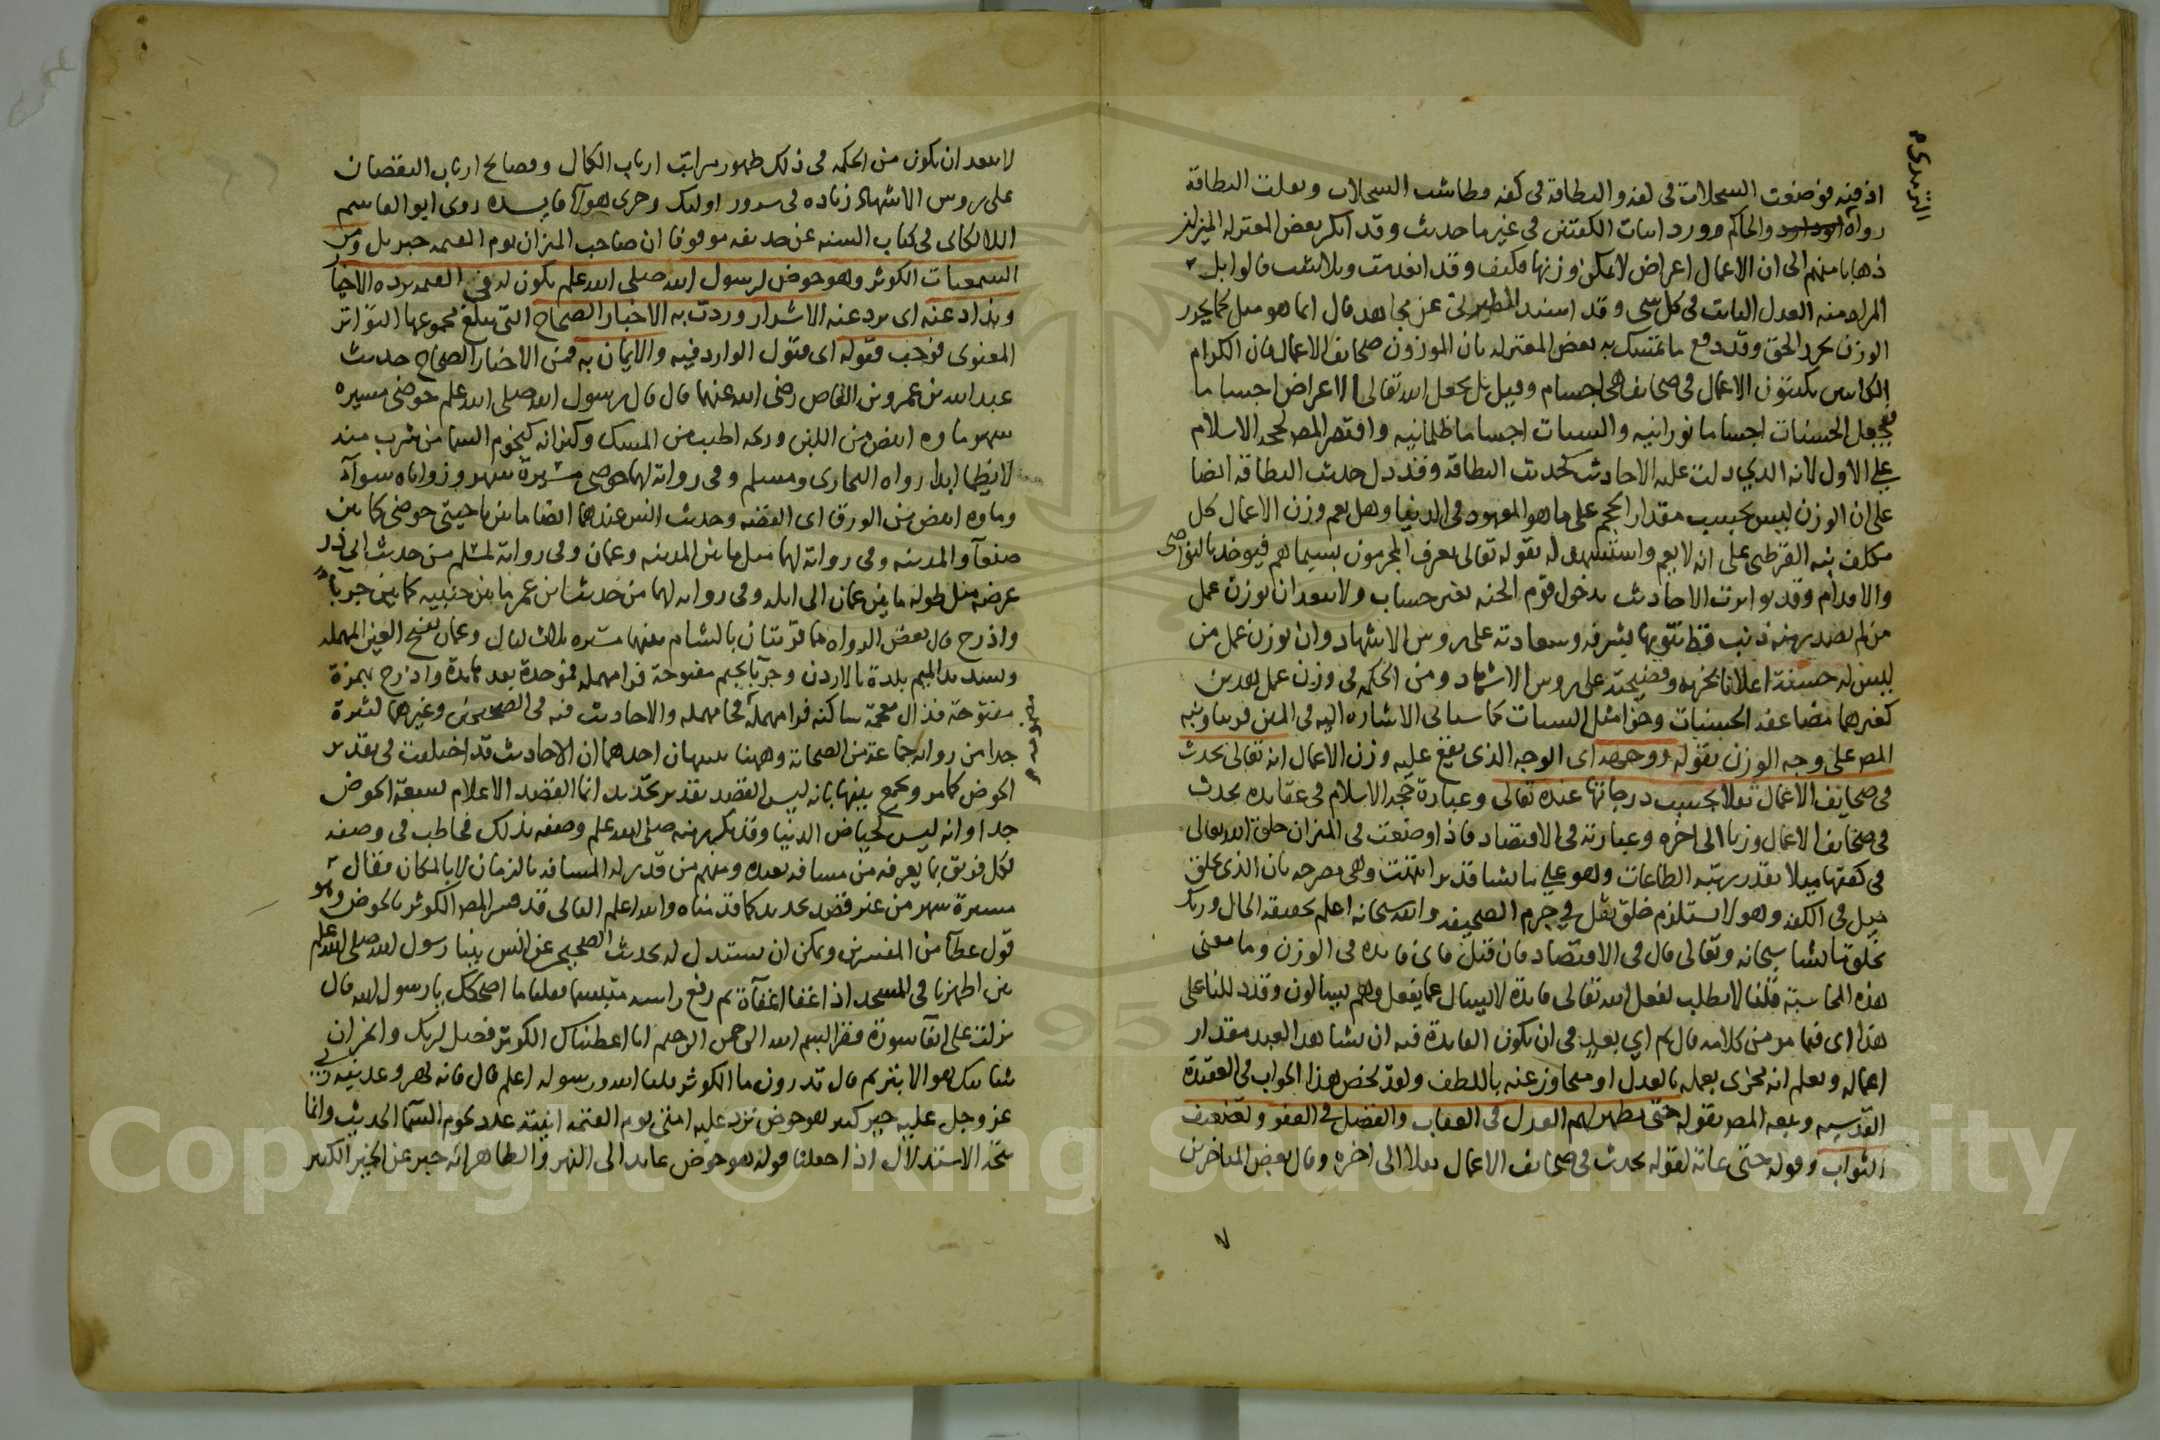 الترمذي
اذ فيه فوضعت السجلات في كفة والبطاقة في كفه فطاشت السجلات وثقلت البطاقة
رواه ابوداود والحاكم وورد اثبات الكفتين في غير ما حديث وقد انكر بعض المعتزله الميزان
ذهابا منهم الى ان الاعمال اعراض لا يمكن وزنها فكيف وقد انعدمت وتلاشت قالوا بل
المراد منه العدل الثابت في كل شي وقد اسند الطبري عن مجاهد قال انما هو مثل كما يحرر
الوزن يحرر الحق وقد دفع ما تمسك به بعض المعتزله بان الموزون صحائف الاعمال فان الكرام
الكاتبين يكتبون الاعمال في صحائف هي اجسام وقيل بل يجعل الله تعالى الاعراض اجساما
فيجعل الحسنات اجساما نورانيه والسيات اجساما ظلمانيه واقتصر المص كحجه الاسلام
على الاول لانه الذي دلت عليه الاحاديث كحديث البطاقة وقد دل حديث البطاقة ايضا
على ان الوزن ليس بحسب مقدار الحجم على ما هو المعهود في الدنيا وهل يعم وزن الاعمال كل
مكلف نبه القرطبي على انه لا يعم واستشهد له بقوله تعالى يعرف المجرمون بسيماهم فيوخذ بالنواصي
والاقدام وقد تواترت الاحاديث بدخول قوم الجنه بغير حساب ولا يبعد ان يوزن عمل
من لم يصدر منه ذنب قط تنويها بشرفه وسعادته على روس الاشهاد وان يوزن عمل من
ليس له حسنة اعلانا بخزيه وفضيحته على روس الاشهاد ومن الحكمه في وزن عمل
كغيرهما مضاعفه الحسنات وجزا مثل السيات كما سياتي الاشاره اليه في المتن قريبا ونبه
المص على وجه الوزن بقوله ووجهه اى الوجه الذى يقع عليه وزن الاعمال انه تعالى يحدث
في صحايف الاعمال ثقلا بحسب درجاتها عنده تعالى وعبارة حجه الاسلام في عقايده يحدث
في صحايف الاعمال وزنا الى اخره وعبارته في الاقتصاد فاذا وضعت في الميزان خلق الله تعالى
في كفتها ميلا بقدر رتبه الطاعات وهو على ما يشا قدير انتهت وهي مصرحه بان الذي يخلق
ميل في الكفه وهو لا يستلزم خلق ثقل في جرم الصحيفه والله سبحانه اعلم بحقيقه الحال وربك
يخلق ما يشا سبحانه وتعالى قال في الاقتصاد فان قيل فاى فايده في الوزن وما معنى
هذه المحاسبة قلنا لا يطلب لفعل الله تعالى فايدة لا يسال عما يفعل وهم يسالون وقد دللنا على
هذا اى فيما مر من كلامه قال ثم اي بعد في ان يكون الفايدة فيه ان يشاهد العبد مقدار
اعماله ويعلم انه مجزى بعمله بالعدل او متجاوز عنه باللطف ولقد لخص هذا الجواب في العقيدة
القدسيه وتبعه المص بقوله حتى يظهر لهم العدل في العقاب والفضل في العفو وتضعيف
الثواب وقوله حتى غاية لقوله يحدث في صحائف الاعمال ثقلا الى اخره وقال بعض المتاخرين
لا يبعد ان يكون من الحكمه في ذلك ظهور مراتب ارباب الكمال وفضائح ارباب النقصان
على روس الاشهاد زياده في سرور اولئك وخزى هولاء فايده روى ابو القاسم
اللالكائى في كتاب السنه عن حذيفه موقوفا ان صاحب الميزان يوم القيمه جبريل ومن
السمعيات الكوثر وهو حوض لرسول الله صلى الله عليه وسلم يكون له في القيمه يرده الاخيار
ويذاد عنه اى يرد عنه الاشرار وردت به الاخبار الصحاح التى يبلغ مجموعها التواتر
المعنوى فوجب قبوله اى قبول الوارد فيه والايمان به فمن الاخبار الصحاح حديث
عبد الله بن عمرو بن العاص رضى الله عنهما قال قال رسول الله صلى الله عليه وسلم حوضى مسيره
شهر ماوه ابيض من اللبن وريحه اطيب من المسك وكيزانه كنجوم السما من شرب منه
لا يظما ابدا رواه البخارى ومسلم وفى رواية لهما حوضى مسيرة شهر وزواياه سوآء
وماوه ابيض من الورق اى الفضه وحديث انس عندهما ايضا ما بين ناحيتى حوضى كما بين
صنعآ والمدينه وفى رواية لهما مثل ما بين المدينه وعمان وفى رواية لمسلم من حديث ابى ذر
عرضه مثل طوله ما بين عمان الى ايله وفى روايه لهما من حديث ابن عمر ما بين جنبيه كما بين جربآ
واذرح قال بعض الرواه هما قريتان بالشام بينهما مسيره ثلاث ليال وعمان بفتح العين المهمله
وتشديد الميم بلدة بالاردن وجربآ بجيم مفتوحة فرا مهمله فموحدة بعد مادة واذرح بهمزة
مفتوحة فذال معجمة ساكنه فرا مهمله فحا مهمله والاحاديث فيه في الصحيحين وغيرهما كثيرة
مضمومه
جدا من روايه جماعة من الصحابة وههنا تنبيهان احدهما ان الاحاديث قد اختلفت في تقدير
الحوض كما مر ويجمع بينها بانه ليس القصد تقدير تحديد انما القصد الاعلام بسعة الحوض
جدا وانه ليس كحياض الدنيا وقد تكرر منه صلى الله عليه وسلم وصفه بذلك فخاطب في وصفه
لكل فريق بما يعرفه من مسافه بعيده ومنهم من قدر له المسافه بالزمان لا بالمكان فقال
مسيرة شهر من غير قصد تحديد كما قدمناه والله اعلم الثانى قد فسر المص الكوثر بالحوض وهو
قول عطآ من المفسرين ويمكن ان يستدل له بحديث الصحيح عن انس بينا رسول الله صلى الله عليه وسلم
بين اظهرنا في المسجد اذ اغفا اغفآة ثم رفع راسه متبسما فقلنا ما اضحكك يا رسول الله قال
نزلت على آنفا سورة فقرا بسم الله الرحمن الرحيم انا اعطيناك الكوثر فصل لربك وانحر ان
شانئك هو الابتر ثم قال تدرون ما الكوثر قلنا الله ورسوله اعلم قال فانه نهر وعدنيه ربى
عز وجل عليه خير كثير هو حوض ترد عليه امتى يوم القيمه انيته عدد نجوم السما الحديث وانما
يتجه الاستدلال اذا جعلنا قوله هو حوض عايدا الى النهر والظاهر انه خبر عن الخير الكثير
Copyright © King Saud University